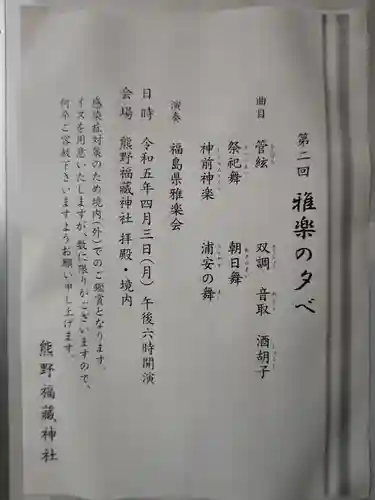 第二回 雅楽の夕べ
曲目 管絃 双調 音取 酒胡子
祭祀舞 朝日舞
神前神楽 浦安の舞
演奏 福島県雅楽会
日時 令和五年四月三日(月)午後六時開演
会場 熊野福藏神社 拝殿・境内
感染症対策のため境内(外)でのご鑑賞となります。
イスを用意いたしますが、数に限りがございますので、
何卒ご容赦下さいますようお願い申し上げます。
熊野福藏神社